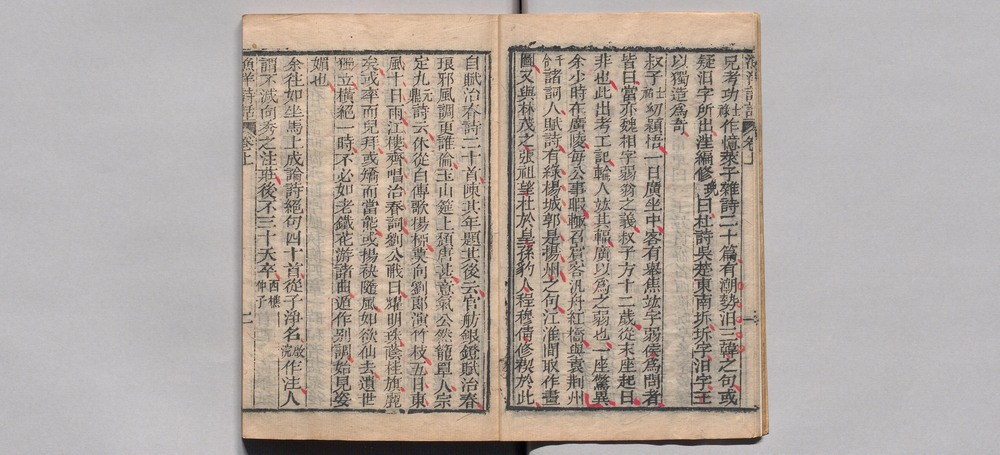 漁洋詩話 卷上 一
兄考功士祿作憶萊子雜詩二十篇有潮勢汩三韓之句或
疑汩字所出編修曰杜詩吳楚東南坼坼字汩字
以獨造為奇
叔子士祜幼穎悟一日廣坐中客有舉焦竑字弱侯為問者
皆曰當亦魏相字弱翁之義叔子方十二歲從末座起曰
非也此出考工記輪人竑其輻廣以為之弱也一座驚異
余少時在廣陵每公事暇輒召賓客汎舟紅橋與袁荆州
諸詞人賦詩有綠楊城郭是揚州之句江淮間取作畫
圖又與林茂之張祖望杜於皇孫豹人程穆倩修禊於此
自賦冶春詩二十首陳其年題其後云官舫銀鐙賦冶春
琅邪風調更誰倫玉山筵上頹唐甚意氣公然籠罩人宗
定九元鼎詩云休從白傅歌楊柳莫向劉郎演竹枝五日東
風十日雨江樓齊唱冶春詞劉公㦷曰耀明珠蔭桂旗麗
矣或率而兒拜或矯而當能或揚袂隨風如欲仙去遺世
獨立橫絕一時不必如老鐵花游諸曲逥作别調始見姿
媚也
余往如坐馬上成論詩絕句四十首從子淨名作注人
謂不減向秀之注莊後不三十夭卒西樵仲子
漁洋詩話 卷上 二